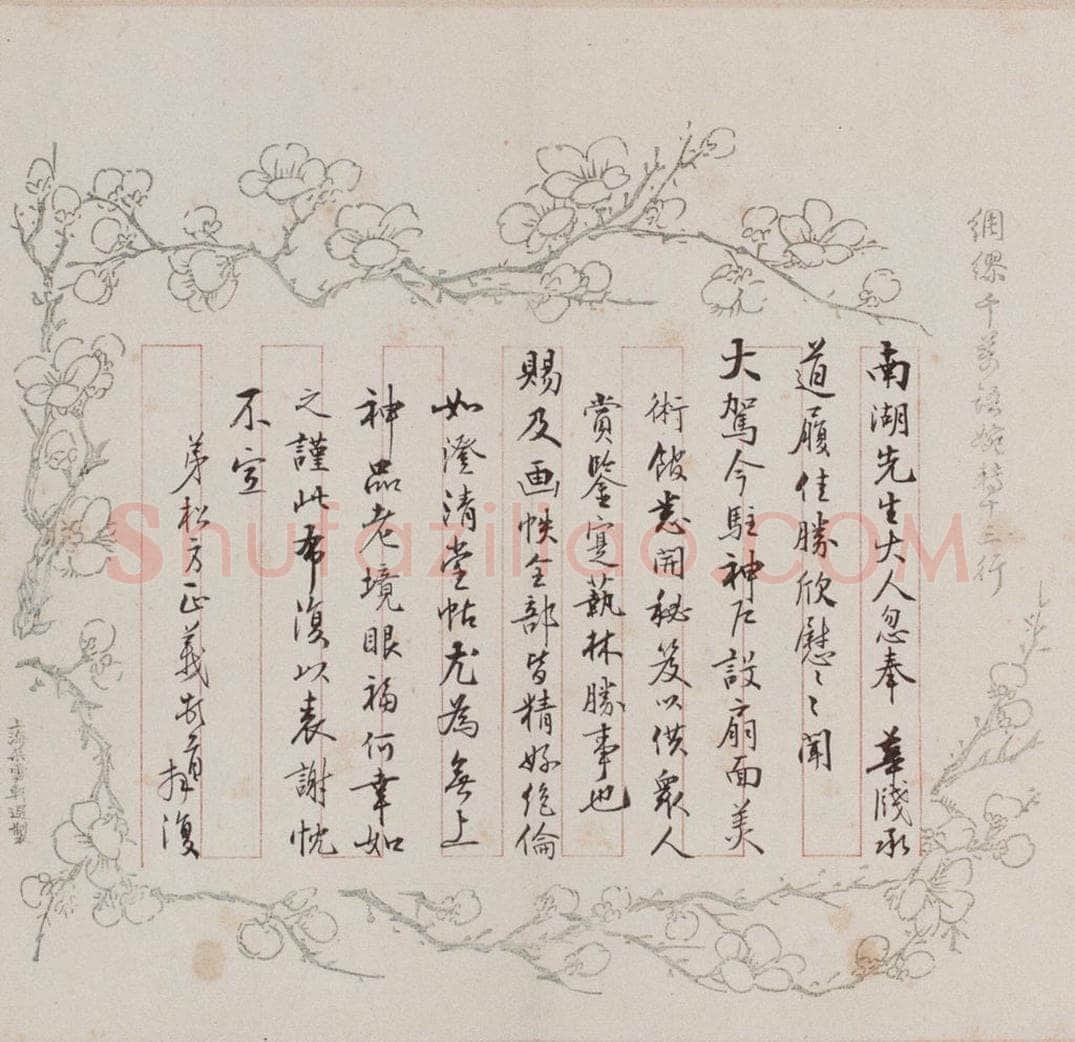 綢繆千萬語婉轉十三行
南湖先生大人忽奉 華牋承
道履佳勝欣慰〻聞
大駕今駐神戶設扇面美
術館悉開秘笈以供眾人
賞鑒寔藝林勝事也
賜及画帙全部皆精好絕倫
如澄清堂帖尤為無上
神品老境眼福何幸如
之謹此布復以表謝忱
不宣
弟松方正義頓首拜復
Shufaziliao.COM